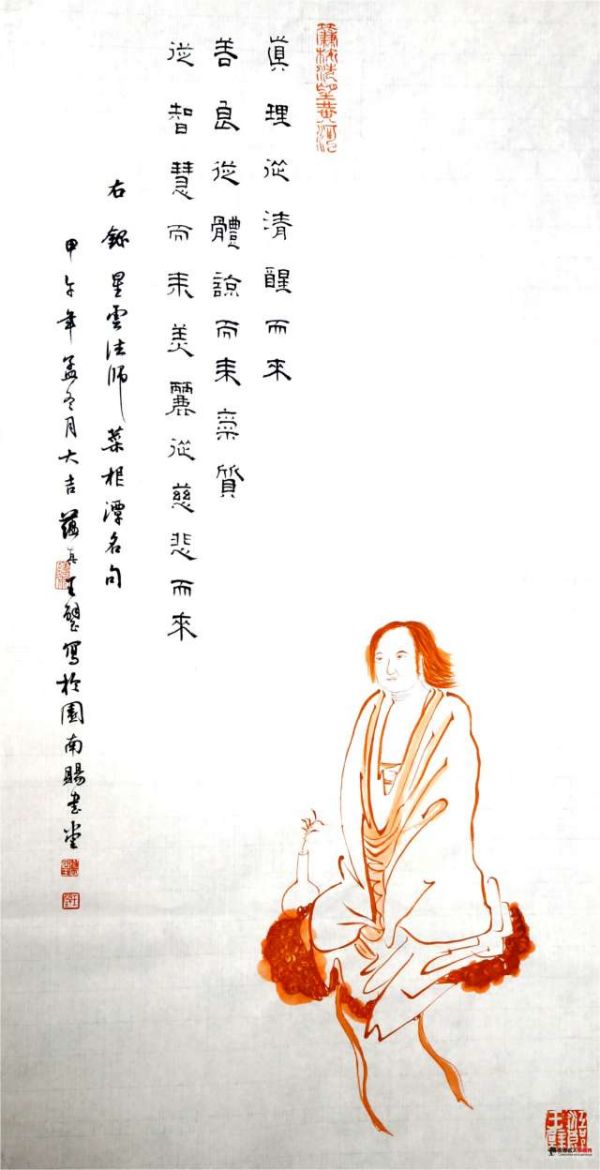 眞理從清醒而來
善良從體諒而來氣質
從智慧而來美麗從慈悲而來
右錄星雲法師菜根潭名句
甲午年孟冬月大吉 王 寫於園南賜書堂